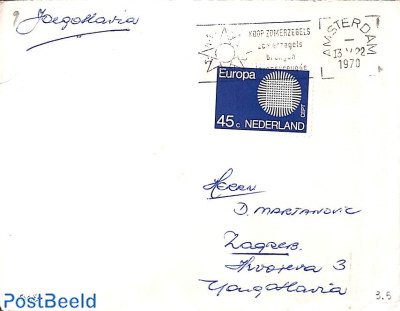 Joegoslavia
KOOP ZOMERZEGELS
ZOMERZEGELS
BRENGEN
AMSTERDAM
1970
Europa
CEPT
45 c NEDERLAND
Herrn
D. Martanovic
Zagreb
3
Yougoslavia
PostBeeld
3.5